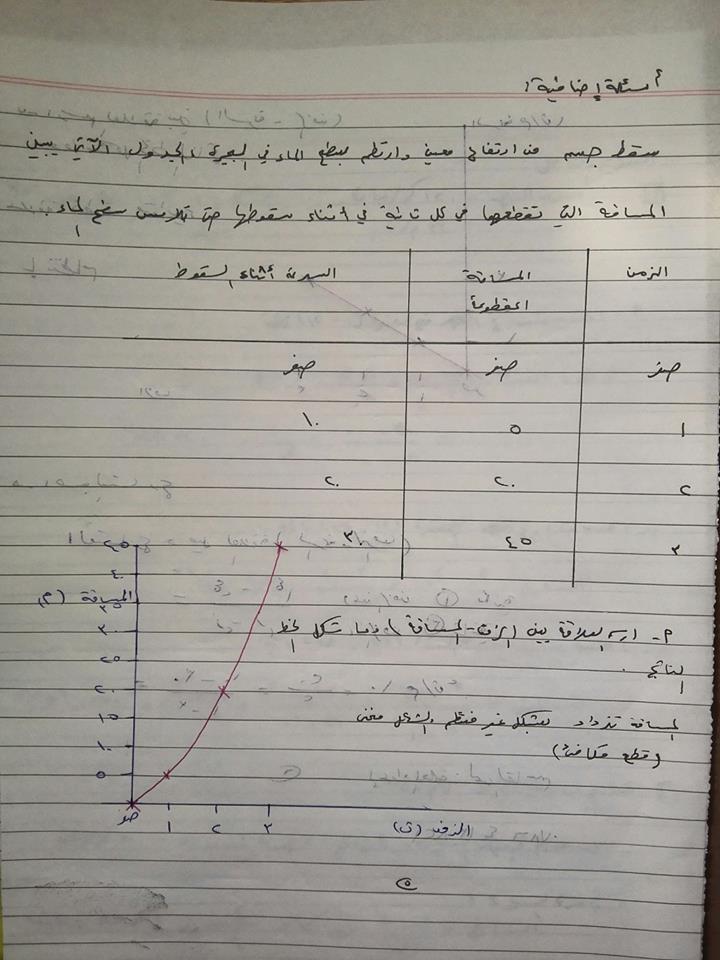 أسئلة إضافية:
سقط جسم من ارتفاع معين وارتطم بسطح الماء في البحيرة، الجدول الآتي يبين
المسافة التي تقطعها في كل ثانية في أثناء سقوطها حتى تلامس سطح الماء.
الزمن المسافة المقطوعة السرعة أثناء السقوط
صفر صفر صفر
١ ٥ ١٠
٢ ٢٠ ٢٠
٣ ٤٥ ٣٠
٢- ارسم العلاقة بين الزمن-المسافة، ما شكل الخط
الناتج.
المسافة تزداد بشكل غير منتظم والشكل منحنى
(قطع مكافئ)
المسافة (م)
٤٥
٤٠
٣٥
٣٠
٢٥
٢٠
١٥
١٠
٥
صفر ١ ٢ ٣ الزمن (ث)
٥